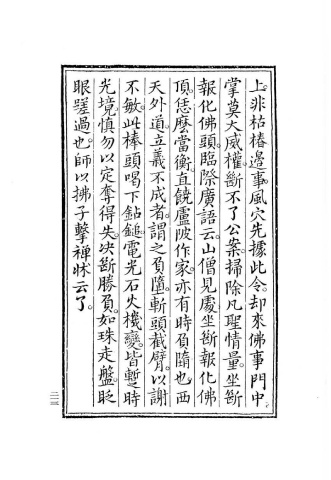 上非枯樁邊事。風穴先據此令。却來佛事門中
掌莫大威權。斷不了公案。掃除凡聖情量。坐斷
報化佛頭。臨際廣語云。山僧見處坐斷報化佛
頂。恁麼當衡。直饒盧陂作家。亦有時負隨也。西
天外道立義不成者。謂之負墮。斬頭截臂。以謝
不敏。此棒頭喝下鉆鎚。電光石火機變。皆暫時
光境。慎勿以定奪得失。决斷勝負。如珠走盤。眨
眼蹉過也。師以拂子擊禪牀云。了。
二三